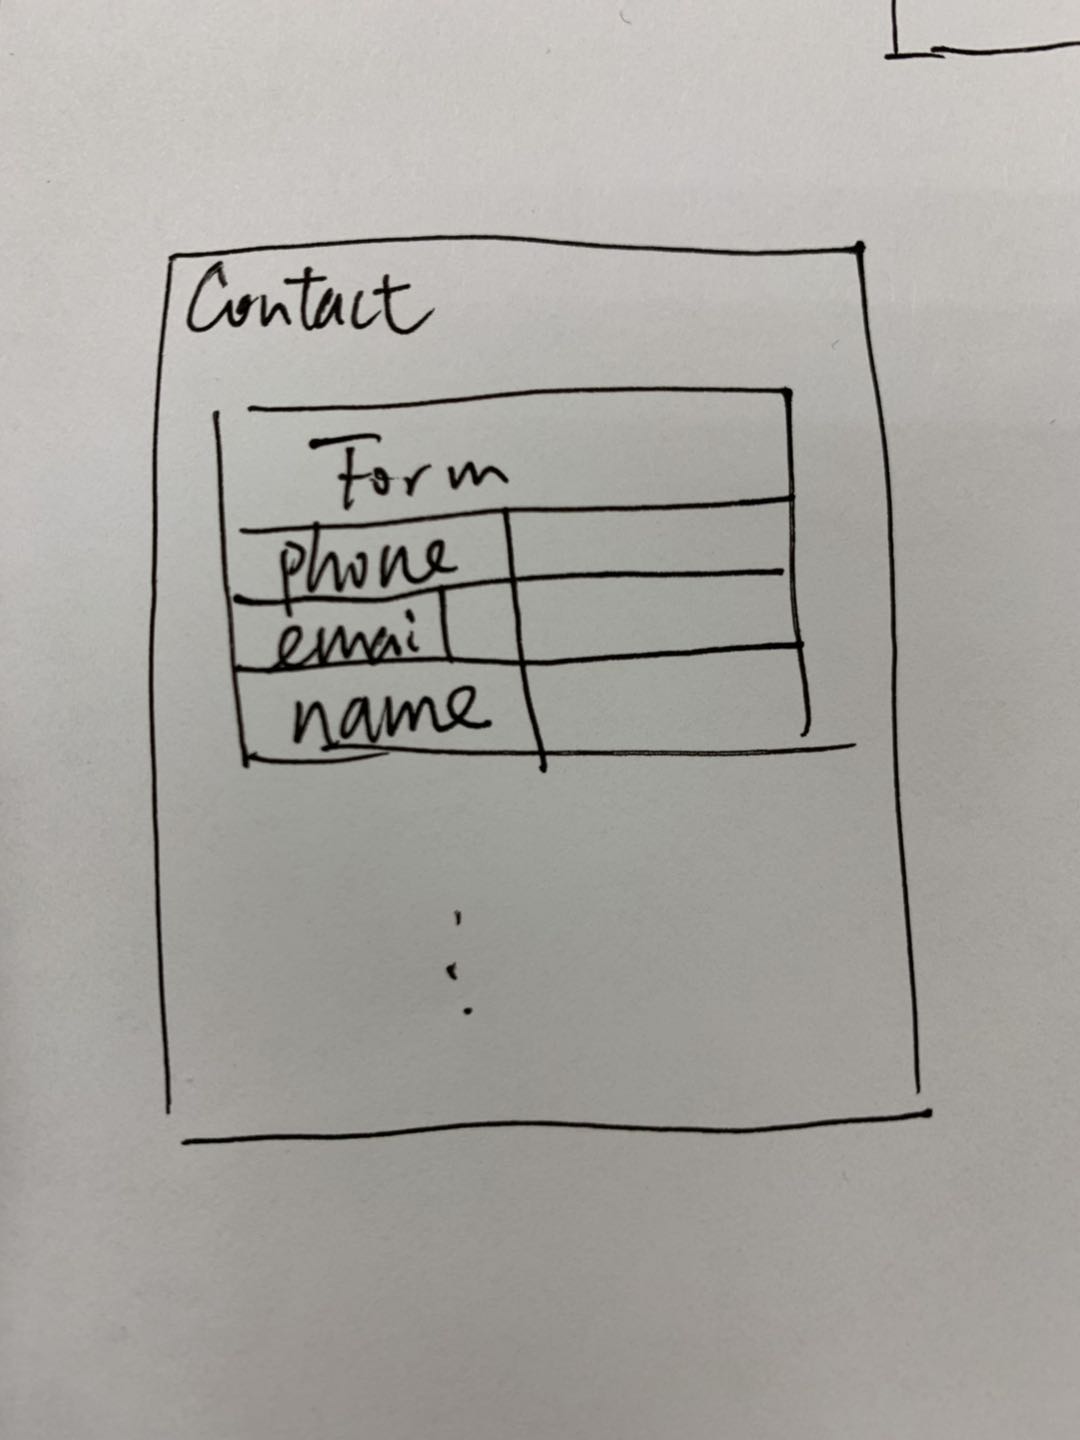 Contact
Form
phone
email
name